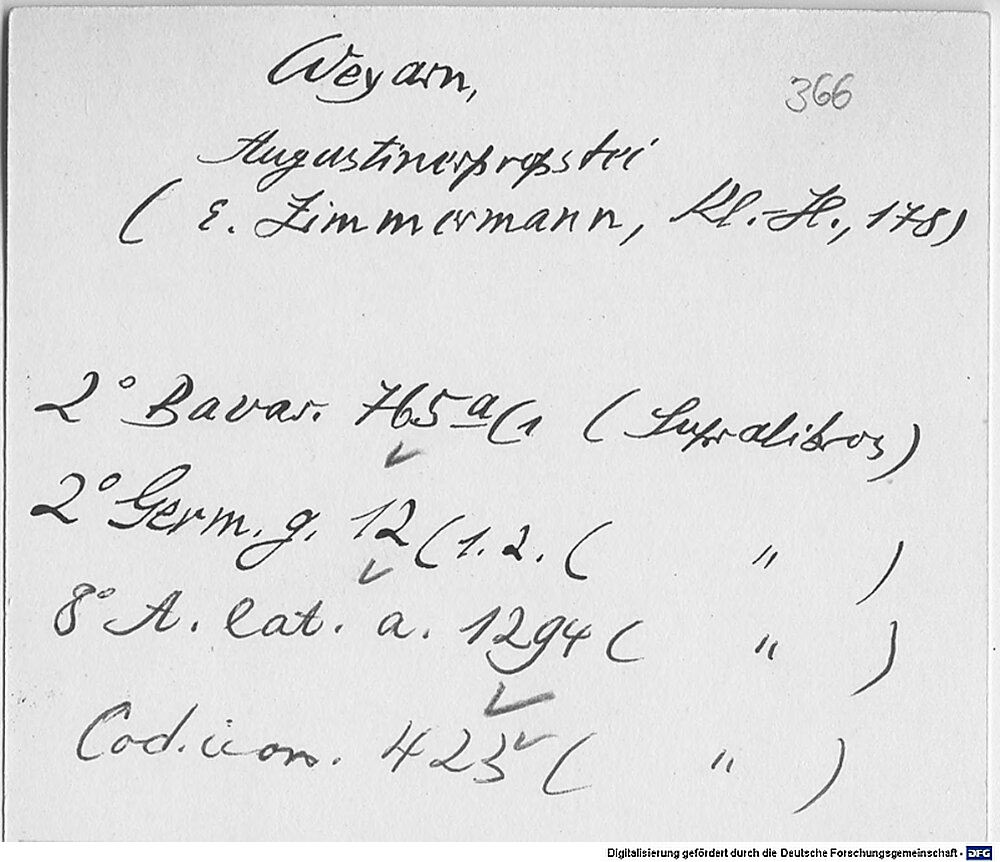 Weyarn,
366
Augustinerpropstei
( E. Zimmermann, Kl.-H., 178)
2° Bavar. 765a(1 ( Supralibros)
2° Germ. g. 12(1.2. ( " )
8° A. lat. a. 1294 ( " )
Cod. icon. 423 ( " )
Digitalisierung gefördert durch die Deutsche Forschungsgemeinschaft - DFG